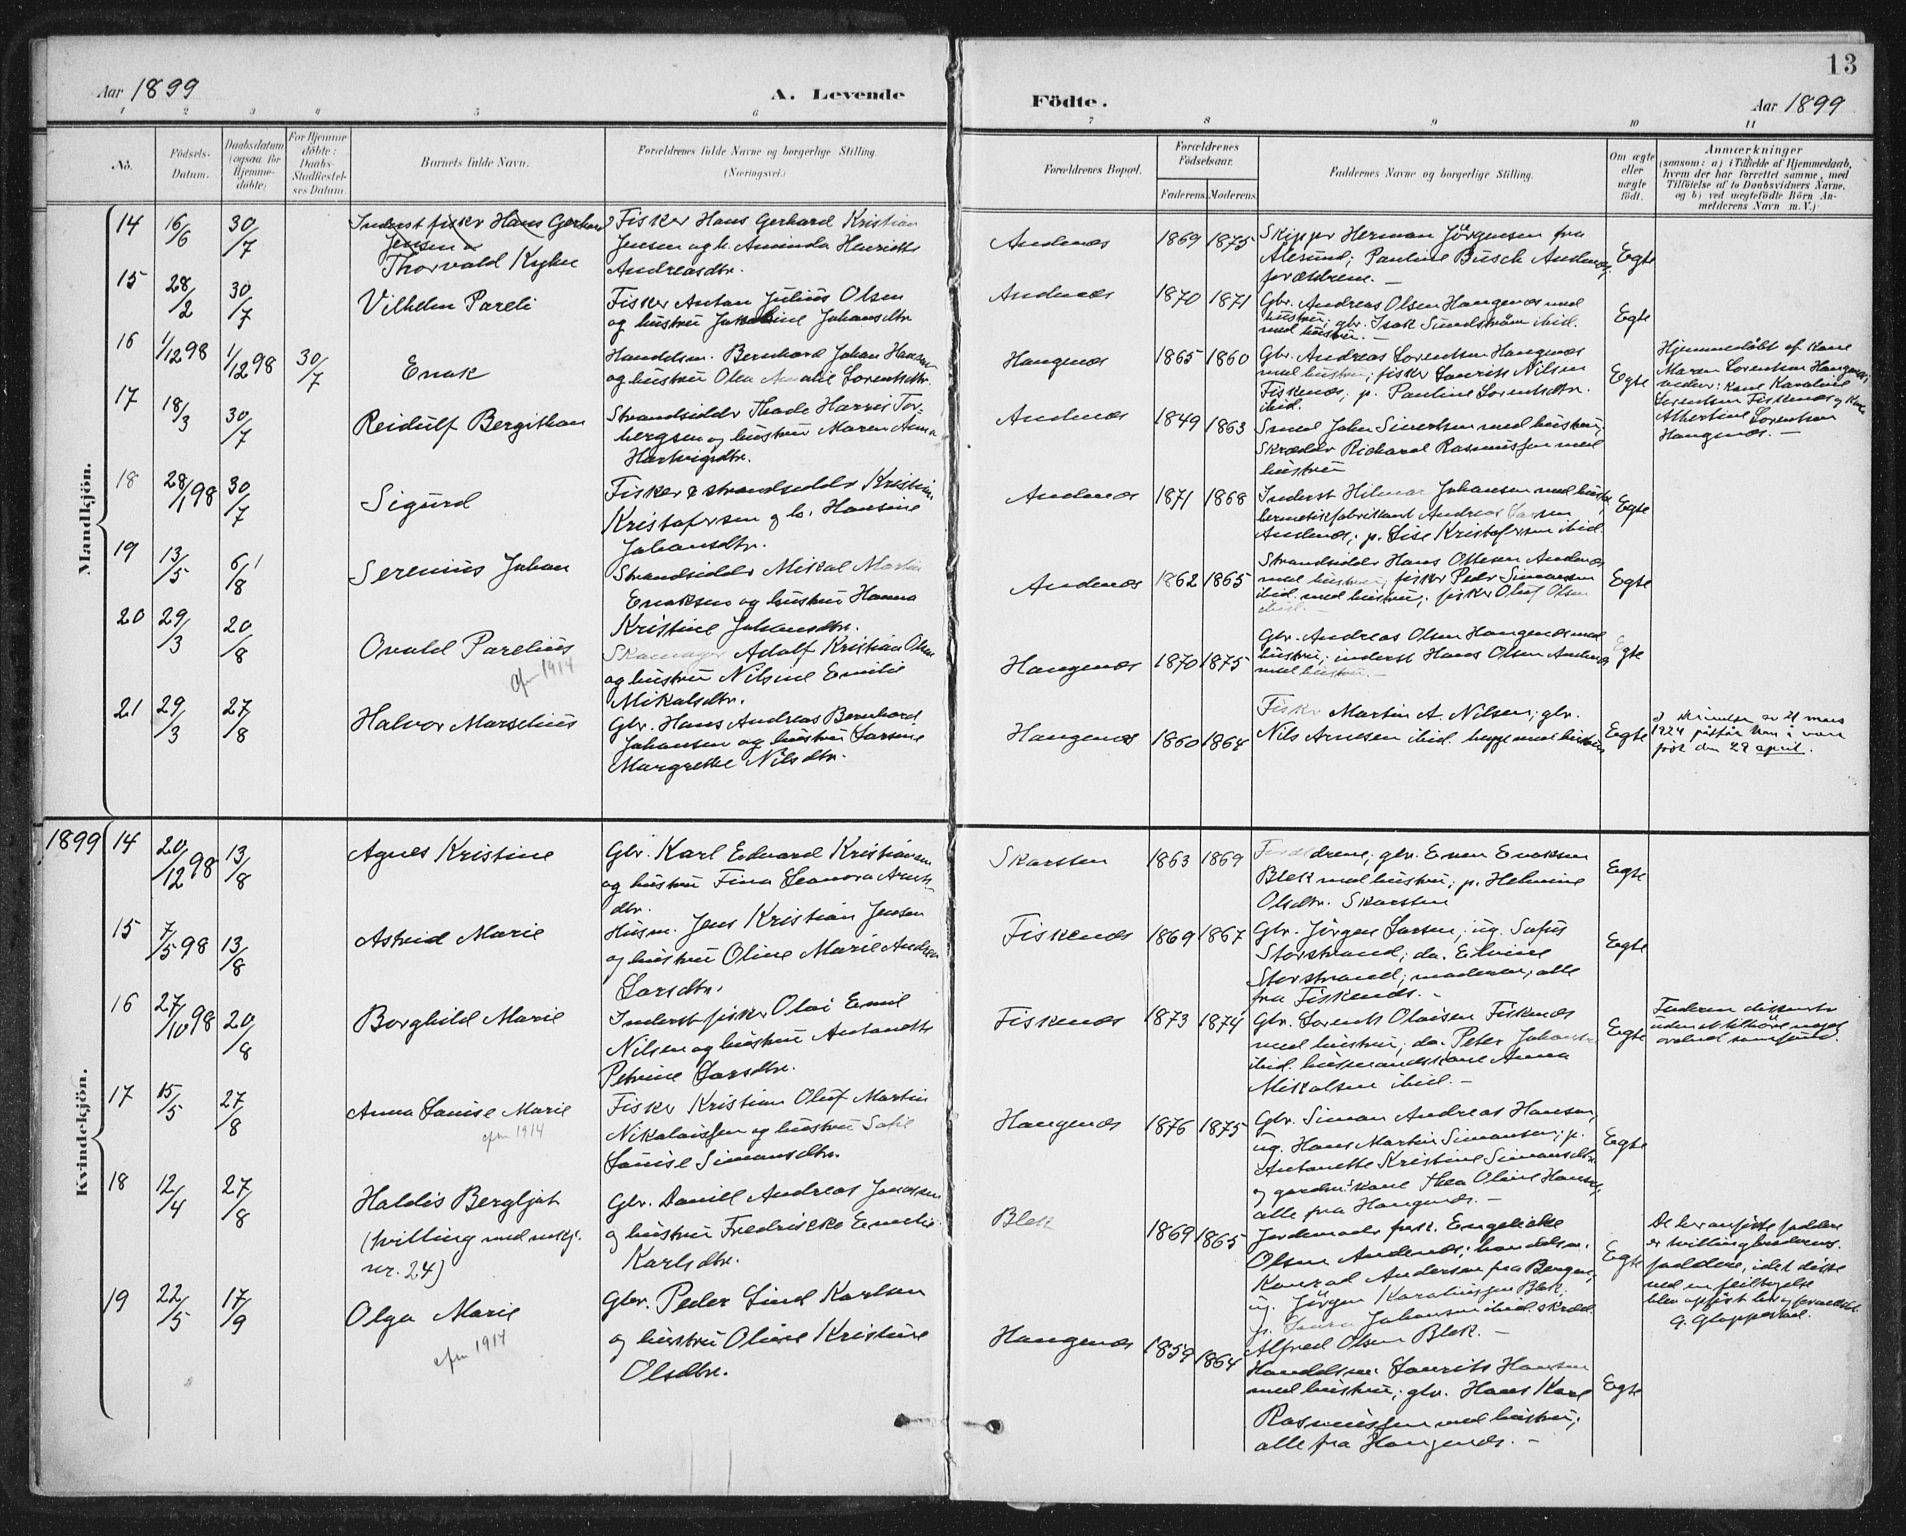 Aar 1899
A. Levende
Födte.
Aar 1899
13
1 2 3 4 5 6 7 8 9 10 11
No.
Födsels-Datum.
Daabsdatum (ogsaa for Hjemme-döbte)
For Hjemme döbte: Daabs-Stadfæstel-ses Datum.
Barnets fulde Navn.
Forældrenes fulde Navne og borgerlige Stilling. (Næringsvei.)
Forældrenes Bopæl.
Forældrenes Födselsaar.
Faderens Moderens
Faddernes Navne og borgerlige Stilling.
Om ægte eller uægte födt.
Anmærkninger
(saasom: a) i Tilfælde af Hjemmedaab,
hvem der har forrettet samme, med
Tilföielse af to Daabsvidners Navne,
og b) ved uægtefödte Börn An-
melderens Navn m. V.)
Mandkjön.
14 16/6 30/7
Inderst fisker Hans Gerhard
Jensen
Thorvald
Fisker Hans Gerhard Kristian
Jensen og h. Henriette
Andreasdtr.
Andenæs 1869 1875
Skipper Herman Jörgensen fra
Ålesund; Pauline Busch Andenæs;
forældrene. —
Egte
15 28/2 30/7
Vilhelm Pareli
Fisker Anton Julius Olsen
og hustru Johansdtr
Andenæs 1870 1871
Gbr. Andreas Olsen Haugenæs med
hustru; gbr. Isak Sundström ibid.
med hustru. —
Egte
16 1/12 98 1/12 98 30/7
Enok
Handelsm. Bernhard Johan Hansen
og hustru Olea Amalie Lorentsdtr.
Haugenæs 1865 1860
Gbr. Andreas Lorentsen Haugenæs
med hustru; fisker Laurits Nilsen
Fiskenæs; p. Pauline Lorentsdtr.
ibid.
Egte
Hjemmedöbt af kone
Maren Lorentsen Haugenæs;
vidner: kone Karoline
Lorentsen Fiskenæs og kone
Albertine Lorentsen
Haugenæs. —
17 18/3 30/7
Reidulf Bergithon
Strandsidder Thade Harris Tor-
bergsen og hustru Maren Anna
Hartvigsdtr.
Andenæs 1849 1863
Smed John Sivertsen med hustru;
Skrædder Richard Rasmussen med
hustru
18 28/1 98 30/7
Sigurd
Fisker & strandsidder Kristian
Kristofersen og h. Hansine
Johansdtr.
Andenæs 1871 1868
Inderst Hilmar Johansen med hustru,
hermetikfabrikant Andreas Larsen
Andenæs; p. Lise Kristofersen ibid.
Egte
19 13/5 6/8
Serenius Johan
Strandsidder Mikal Martin
Enoksen og hustru Hanna
Kristine Johansdtr.
Andenæs 1862 1865
Strandsidder Hans Ottesen Andenæs
med hustru; fisker Peder Simonsen
ibid. med hustru; fisker Oluf Olsen
ibid. —
Egte
20 29/3 20/8
Ovald Parelius
1914
Skomager Adolf Kristian Olsen
og hustru Nilsine Emilie
Mikalsdtr.
Haugenæs 1870 1875
Gbr. Andreas Olsen Haugenæs med
hustru; inderst Hans Olsen Andenæs
med hustru. —
Egte
21 29/3 27/8
Halvor Marselius
Gbr. Hans Andreas Bernhard
Johansen og hustru Larsine
Margrethe Nilsdtr.
Haugenæs 1860 1864
Fisker Martin A. Nilsen; gbr.
Nils Arnesen ibid. begge med hustru
Egte
I skrivelse av 21 mars
1924 påstår han i være
födt den 29 april.
Kvindekjön.
1899 14 20/12 98 13/8
Agnes Kristine
Gbr. Karl Edvard Kristiansen
og hustru Fina Leonora Arnts-
dtr.
Skarsten 1863 1869
Forældrene; gbr. Even Enoksen
Blek med hustru; p. Helmine
Olsdtr. Skarsten
Egte
15 7/5 98 13/8
Astrid Marie
Husm. Jens Kristian Jensen
og hustru Oline Marie Andrea
Larsdtr.
Fiskenæs 1869 1867
Gbr. Jörgen Larsen; ug. Sofus
Storstrand; do. Elvine
Storstrand; moderen; alle
fra Fiskenæs. —
Egte
16 27/10 98 20/8
Borghild Marie
Inderst fisker Olai Emil
Nilsen og hustru Antonette
Petrine Larsdtr.
Fiskenæs 1873 1874
Gbr. Lorents Olaisen Fiskenæs
med hustru; do. Peter Johansen
ibid. husmandskone Anna
Mikalsen ibid. —
Egte
Faderen dissenter
uden at tilhöre noget
ordnet samfund.
17 15/5 27/8
Anna Louise Marie
1914
Fisker Kristian Oluf Martin
Nikolaissen og hustru Sofie
Louise Simonsdtr.
Haugenæs 1876 1875
Gbr. Simon Andreas Hansen,
ug. Hans Martin Simonsen; p.
Antonette Kristine Simonsdtr.
og gardm.kone Thea Oline Hansen,
alle fra Haugenæs. —
Egte
18 12/4 27/8
Haldis Bergljot
(tvilling med mskj.
nr. 24)
Gbr. Daniel Andreas Jonassen
og hustru Fredrikke Emelie
Karlsdtr.
Blek 1869 1865
Jordemoder frk. Engelikke
Olsen Andenæs; handelsm.
Konrad Anderson fra Bergen;
ug. Jörgen Karoliussen Blek;
p. Laura Johansen ibid. skræd.
Alfred Olsen Blek. —
Egte
De her anförte faddere
er tvillingbroderens
faddere, idet disse
ved en feiltagelse
blev opfört her
G. Gloppestad.
19 22/5 17/9
Olga Marie
1914
Gbr. Peder Lind Karlsen
og hustru Oline Kristine
Olsdtr.
Haugenæs 1859 1864
Handelsm. Laurits Hansen
med hustru; gbr. Hans Karl
Rasmussen med hustru;
alle fra Haugenæs. —
Egte